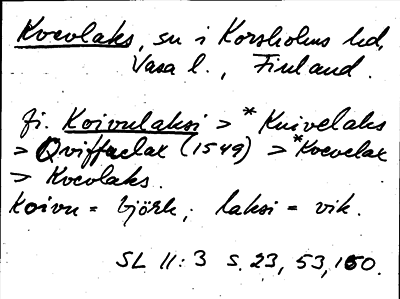 Kvevlaks, sn i Korsholms hd,
Vasa l., Finland.
fi. Koivulaksi > * Kuivelaks
> Qvifflaelax (1549) > *Kvevelax
> Kvevlaks.
Koivu = björk; laksi = vik.
SL 11:3 s. 23, 53, 160.